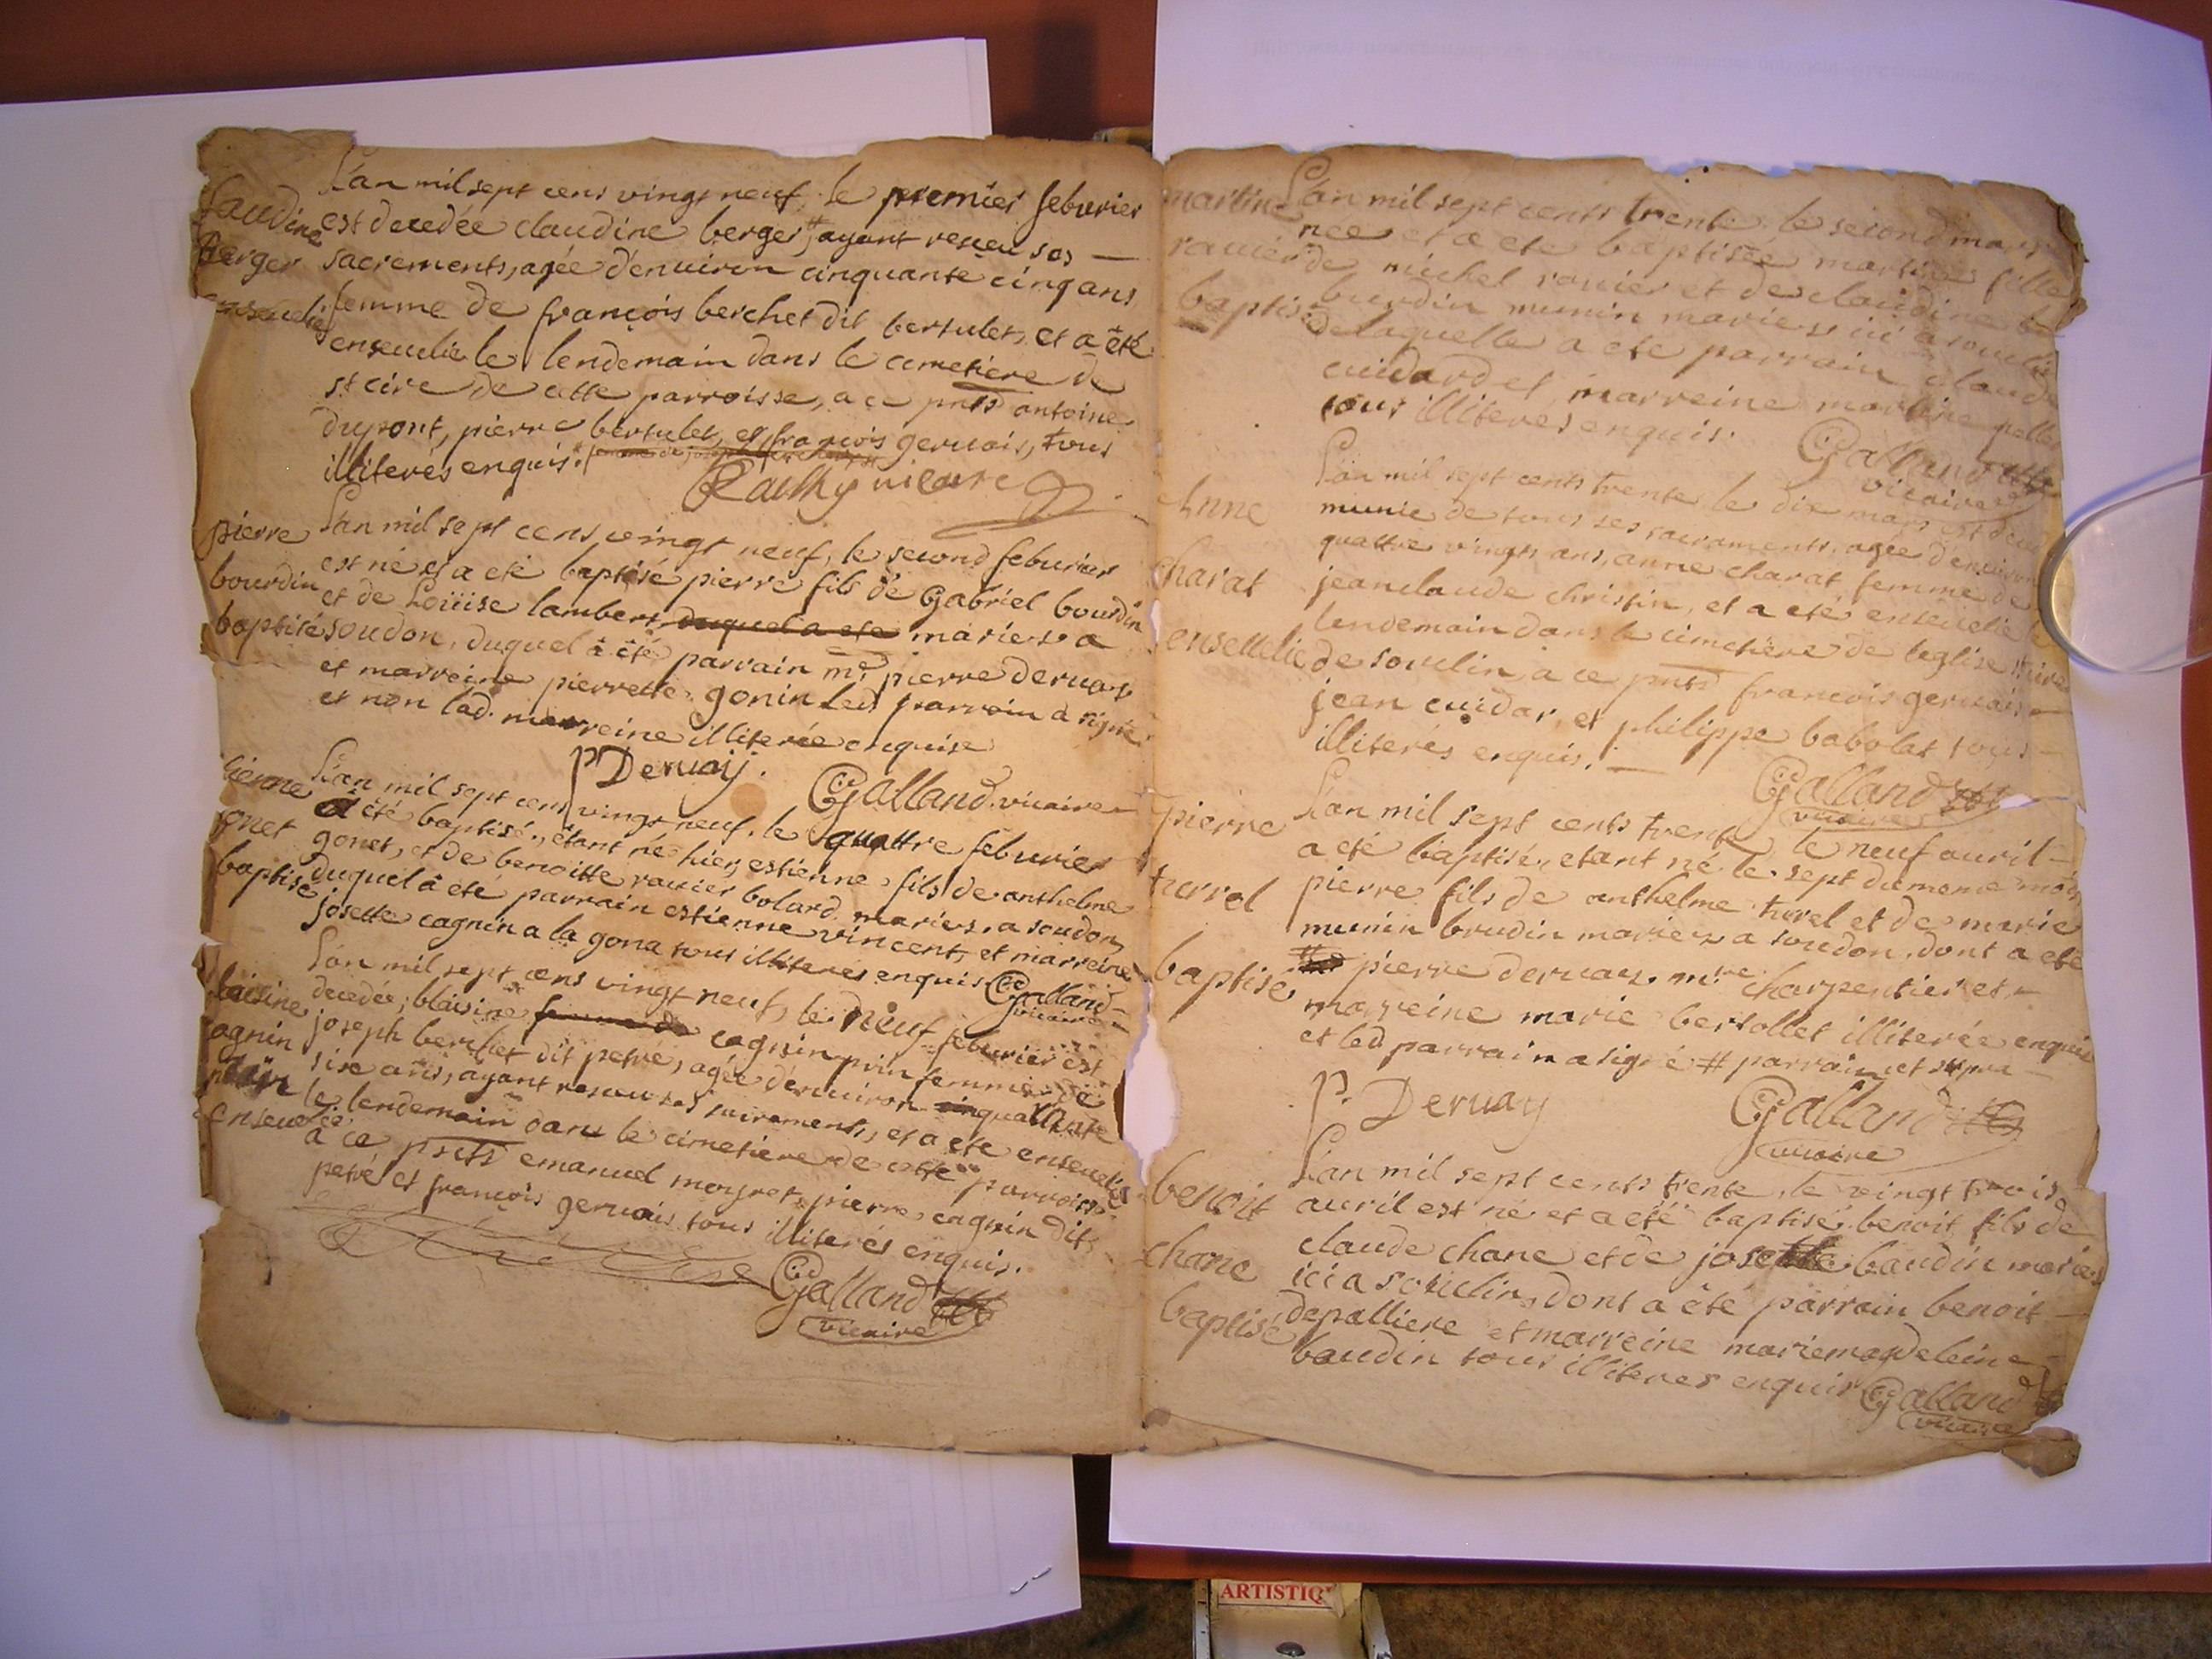 L'an mil sept cens vingt neuf, le premier feburier
claudine est decedée claudine berger, # ayant receu ses
berger sacrements, agée d'enuiron cinquante cinq ans
enseuelie femme de françois berchet dit bertulet, et a êté
enseuelie le lendemain dans le cimetiere de
st cire de cette parroisse, a ce pnts antoine
dupont, pierre bertulet, et françois geruais, tous
illiterés enquis.
vicaire
pierre L'an mil sept cens vingt neuf, le second feburier
est né et a eté baptisé pierre fils de Gabriel bourdin
bourdin et de Loüise lambert duquel a eté mariez a
baptisé soudon, duquel a êté parrain me pierre deruay
et marreine pierrette gonin Led parrain a signé
et non lad. marreine illiterée enquise
P Deruay. Galland vicaire
L'an mil sept cens vingt neuf, le quattre feburier
a été baptisé, êtant né hier, estienne fils de anthelme
gonet gonet, et de benoitte rauier bolard mariez a soudon,
baptisé duquel a eté parrain estienne vincent, et marreine
josette cagnin a la gona tous illiteres enquis Galland
vicaire
L'an mil sept cens vingt neuf, le neuf feburier est
blaisine decedée, blaisine femme de cagnin prin femme de
cagnin joseph berchet dit petré, agée d'enuiron cinquante
sixe ans, ayant receu ses sacrements, et a eté enseuelie
le lendemain dans le cimetiere de cette parroisse
enseuelie a ce pnts emanuel moyret, pierre cagnin dit
petré et françois geruais tous illiterés enquis.
Galland
vicaire
martine L'an mil sept cents trente, le second mars
née et a eté baptisée martine fille
rauier de michel rauier et de claudine
baptisée burdin munin mariez ici a souclin
de laquelle a eté parrain claude
cuidard et marreine martine
tous illiteres enquis. Galland
vicaire
L'an mil sept cents trente, le dix mars est
Anne munie de tous ses sacraments, agée d'enuiron
quattre vingts ans, anne charat, femme de
charat jeanclaude christin, et a eté enseuelie le
lendemain dans le cimetiere de leglise
enseuelie de souclin, a ce pnts françois geruais
jean cuidar, et philippe babolat tous
illiterés enquis.
Galland
vicaire
pierre L'an mil sept cents trente, le neuf auril
a eté baptisé, etant né le sept du meme mois,
turrel pierre fils de anthelme turel et de marie
munin brudin mariez a soudon, dont a eté
baptisé # pierre deruay mtre charpentier et
marreine marie bertollet illiterée enquise
et led parrain a signé # parrain et supra
P. Deruay Galland
vicaire
L'an mil sept cents trente, le vingt trois
benoit auril est né et a eté baptisé benoit fils de
claude chane et de josette baudin mariez
chane ici a souclin, dont a êté parrain benoit
baptisé depalliere et marreine mariemagdeleine
baudin tous illiteres enquis Galland
vicaire
ARTISTIQ